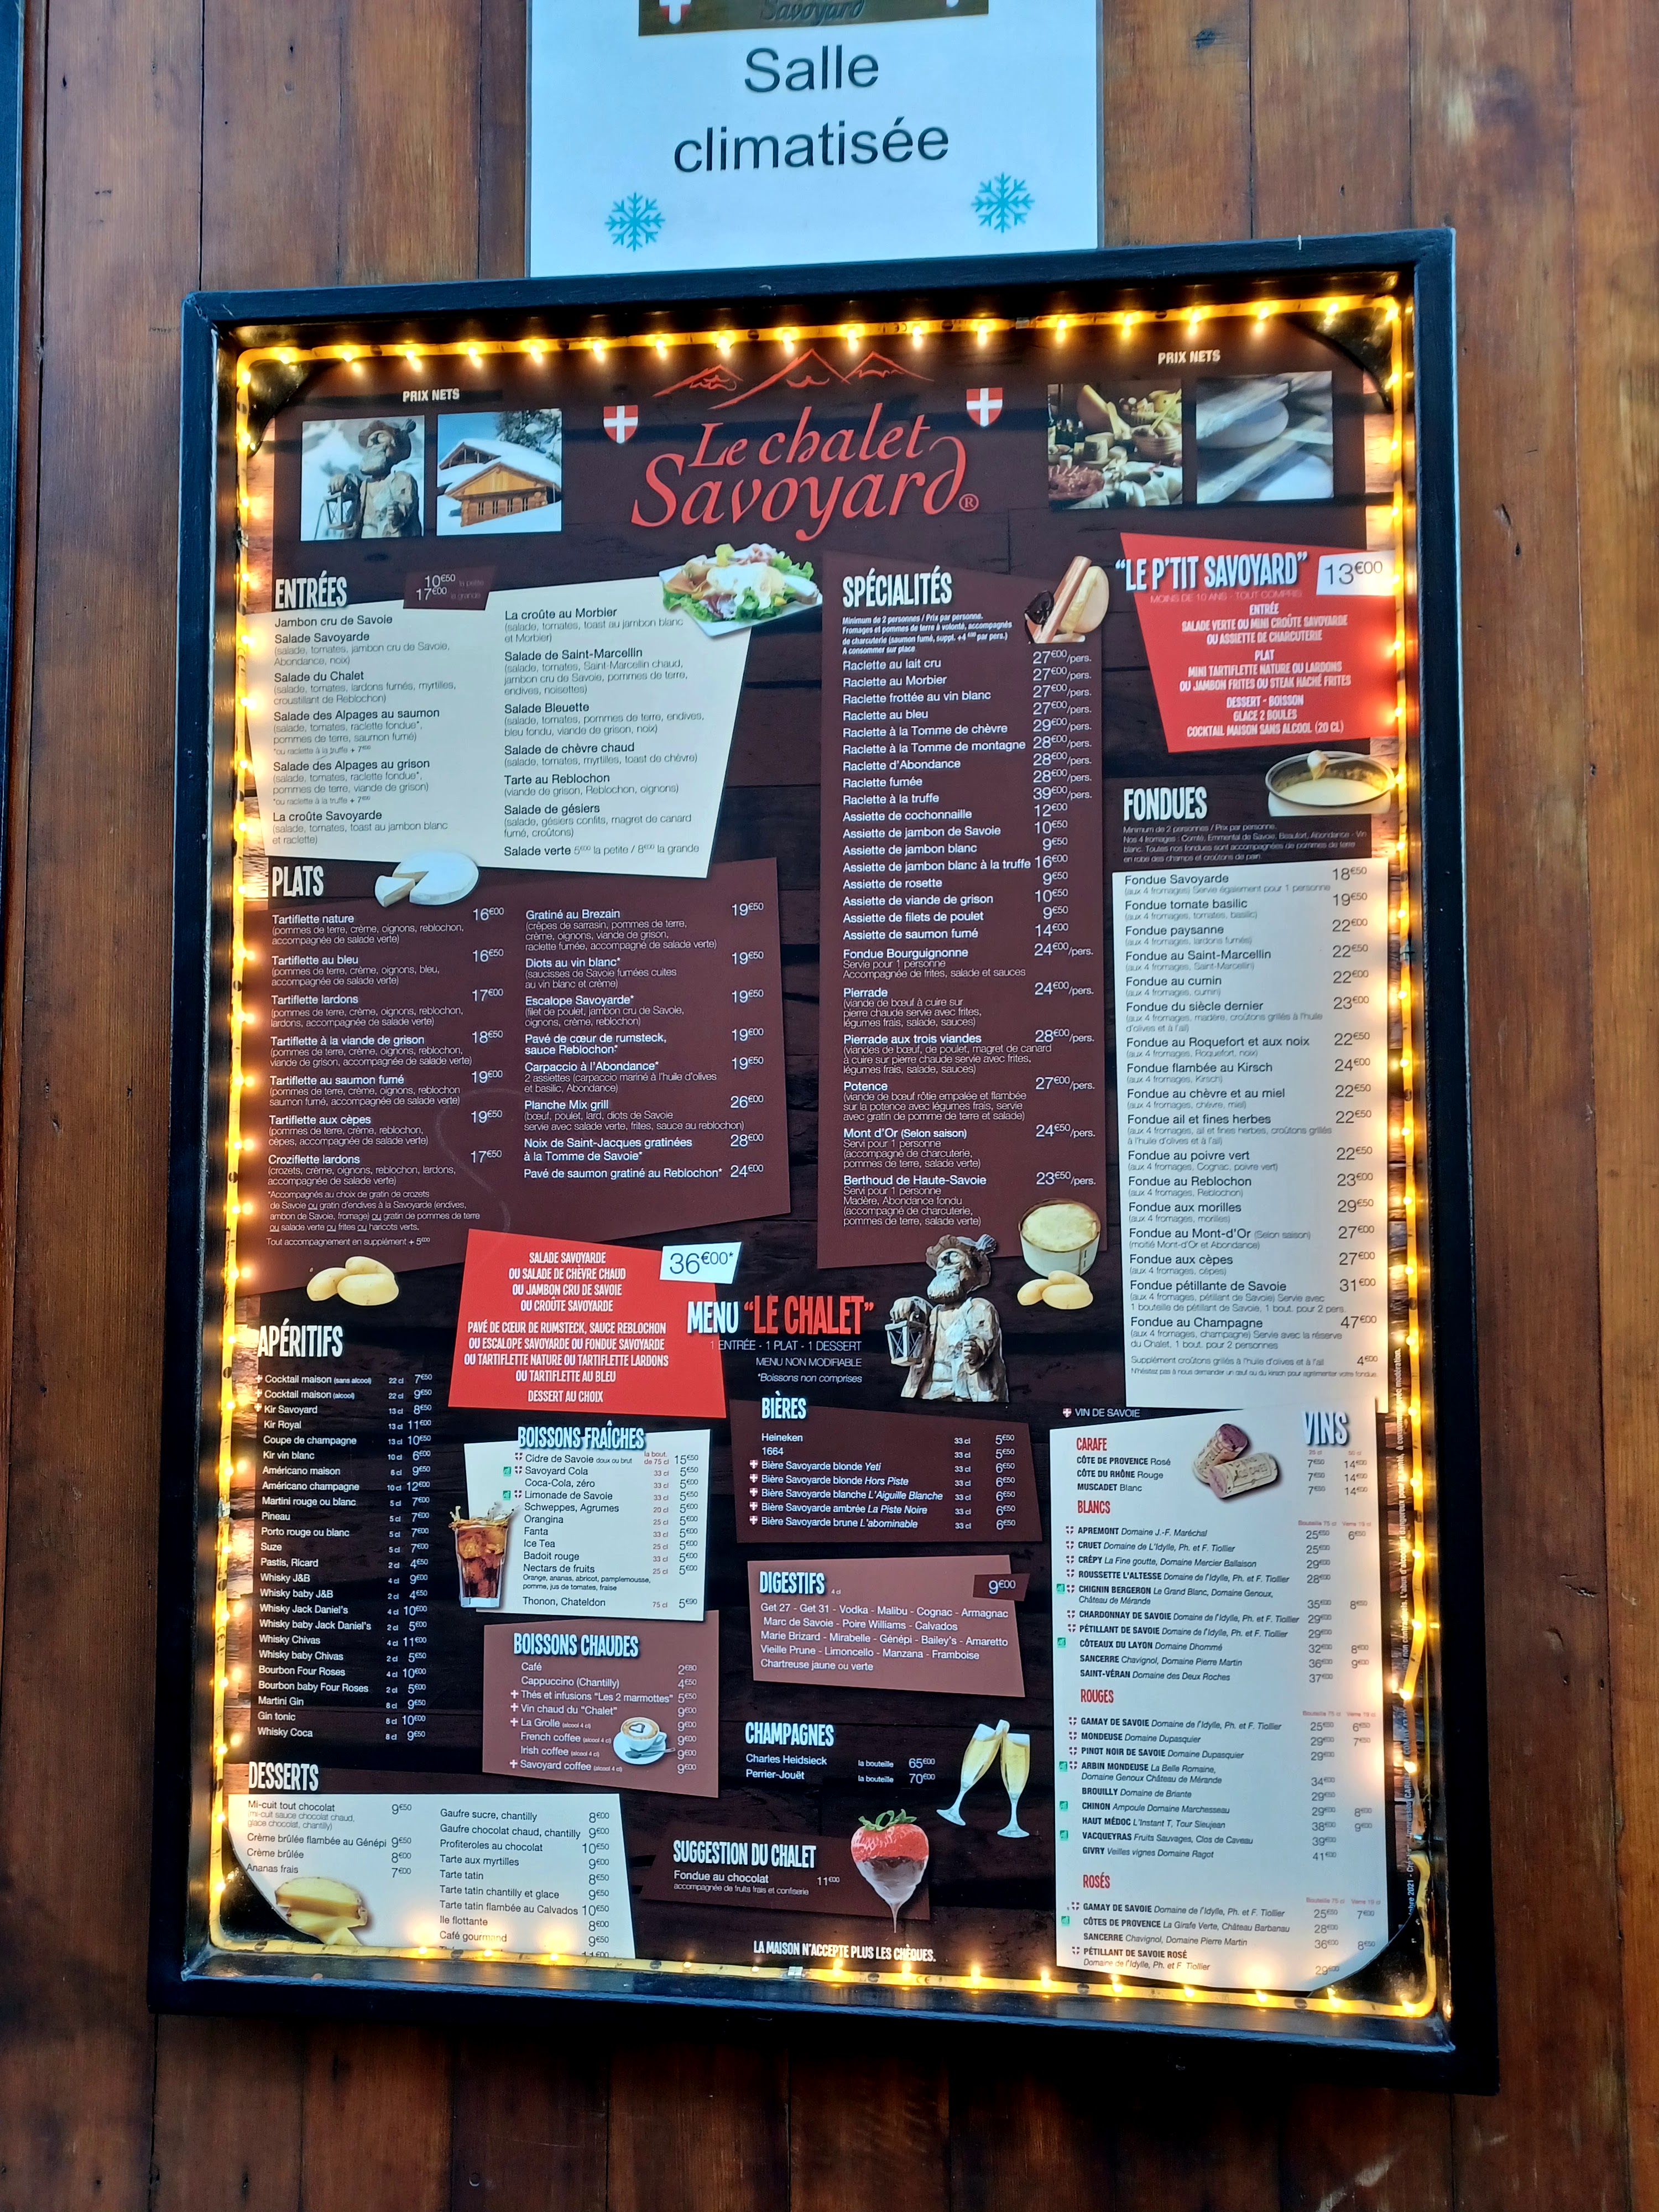 Savoyard
Salle
climatisée
PRIX NETS
PRIX NETS
Le chalet
Savoyard®
ENTRÉES
10€50 la petite
17€00 la grande
Jambon cru de Savoie
Salade Savoyarde
(salade, tomates, jambon cru de Savoie,
Abondance, noix)
Salade du Chalet
(salade, tomates, lardons fumés, myrtilles,
croustillant de Reblochon)
Salade des Alpages au saumon
(salade, tomates, raclette fondue*,
pommes de terre, saumon fumé)
*ou raclette à la truffe + 7€00
Salade des Alpages au grison
(salade, tomates, raclette fondue*,
pommes de terre, viande de grison)
*ou raclette à la truffe + 7€00
La croûte Savoyarde
(salade, tomates, toast au jambon blanc
et raclette)
La croûte au Morbier
(salade, tomates, toast au jambon blanc
et Morbier)
Salade de Saint-Marcellin
(salade, tomates, Saint-Marcellin chaud,
jambon cru de Savoie, pommes de terre,
endives, noisettes)
Salade Bleuette
(salade, tomates, pommes de terre, endives,
bleu fondu, viande de grison, noix)
Salade de chèvre chaud
(salade, tomates, myrtilles, toast de chèvre)
Tarte au Reblochon
(viande de grison, Reblochon, oignons)
Salade de gésiers
(salade, gésiers confits, magret de canard
fumé, croûtons)
Salade verte 5€00 la petite / 8€00 la grande
PLATS
Tartiflette nature 16€00
(pommes de terre, crème, oignons, reblochon,
accompagnée de salade verte)
Tartiflette au bleu 16€50
(pommes de terre, crème, oignons, bleu,
accompagnée de salade verte)
Tartiflette lardons 17€00
(pommes de terre, crème, oignons, reblochon,
lardons, accompagnée de salade verte)
Tartiflette à la viande de grison 18€50
(pommes de terre, crème, oignons, reblochon,
viande de grison, accompagnée de salade verte)
Tartiflette au saumon fumé 19€00
(pommes de terre, crème, oignons, reblochon
saumon fumé, accompagnée de salade verte)
Tartiflette aux cèpes 19€50
(pommes de terre, crème, reblochon,
cèpes, accompagnée de salade verte)
Croziflette lardons 17€50
(crozets, crème, oignons, reblochon, lardons,
accompagnée de salade verte)
*Accompagnés au choix de gratin de crozets
de Savoie ou gratin d'endives à la Savoyarde (endives,
ambon de Savoie, fromage) ou gratin de pommes de terre
ou salade verte ou frites ou haricots verts.
Tout accompagnement en supplément + 5€00
Gratiné au Brezain 19€50
(crêpes de sarrasin, pommes de terre,
crème, oignons, viande de grison,
raclette fumée, accompagné de salade verte)
Diots au vin blanc* 19€50
(saucisses de Savoie fumées cuites
au vin blanc et crème)
Escalope Savoyarde* 19€50
(filet de poulet, jambon cru de Savoie,
oignons, crème, reblochon)
Pavé de cœur de rumsteck, 19€00
sauce Reblochon*
Carpaccio à l'Abondance* 19€50
2 assiettes (carpaccio mariné à l'huile d'olives
et basilic, Abondance)
Planche Mix grill 26€00
(bœuf, poulet, lard, diots de Savoie
servie avec salade verte, frites, sauce au reblochon)
Noix de Saint-Jacques gratinées 28€00
à la Tomme de Savoie*
Pavé de saumon gratiné au Reblochon* 24€00
SPÉCIALITÉS
Minimum de 2 personnes / Prix par personne.
Fromages et pommes de terre à volonté, accompagnés
de charcuterie (saumon fumé, suppl. +4 €00 par pers.)
A consommer sur place
Raclette au lait cru 27€00/pers.
Raclette au Morbier 27€00/pers.
Raclette frottée au vin blanc 27€00/pers.
Raclette au bleu 27€00/pers.
Raclette à la Tomme de chèvre 29€00/pers.
Raclette à la Tomme de montagne 28€00/pers.
Raclette d'Abondance 28€00/pers.
Raclette fumée 28€00/pers.
Raclette à la truffe 39€00/pers.
Assiette de cochonnaille 12€00
Assiette de jambon de Savoie 10€50
Assiette de jambon blanc 9€50
Assiette de jambon blanc à la truffe 16€00
Assiette de rosette 9€50
Assiette de viande de grison 10€50
Assiette de filets de poulet 9€50
Assiette de saumon fumé 14€00
Fondue Bourguignonne 24€00/pers.
Servie pour 1 personne
Accompagnée de frites, salade et sauces
Pierrade 24€00/pers.
(viande de bœuf à cuire sur
pierre chaude servie avec frites,
légumes frais, salade, sauces)
Pierrade aux trois viandes 28€00/pers.
(viandes de bœuf, de poulet, magret de canard
à cuire sur pierre chaude servie avec frites,
légumes frais, salade, sauces)
Potence 27€00/pers.
(viande de bœuf rôtie empalée et flambée
sur la potence avec légumes frais, servie
avec gratin de pomme de terre et salade)
Mont d'Or (Selon saison) 24€50/pers.
Servi pour 1 personne
(accompagné de charcuterie,
pommes de terre, salade verte)
Berthoud de Haute-Savoie 23€50/pers.
Servi pour 1 personne
Madère, Abondance fondu
(accompagné de charcuterie,
pommes de terre, salade verte)
"LE P'TIT SAVOYARD" 13€00
MOINS DE 10 ANS - TOUT COMPRIS
ENTRÉE
SALADE VERTE OU MINI CROÛTE SAVOYARDE
OU ASSIETTE DE CHARCUTERIE
PLAT
MINI TARTIFLETTE NATURE OU LARDONS
OU JAMBON FRITES OU STEAK HACHÉ FRITES
DESSERT - BOISSON
GLACE 2 BOULES
COCKTAIL MAISON SANS ALCOOL (20 CL)
FONDUES
Minimum de 2 personnes / Prix par personne.
Nos 4 fromages : Comté, Emmental de Savoie, Beaufort, Abondance - Vin
blanc. Toutes nos fondues sont accompagnées de pommes de terre
en robe des champs et croûtons de pain.
Fondue Savoyarde 18€50
(aux 4 fromages) Servie également pour 1 personne
Fondue tomate basilic 19€50
(aux 4 fromages, tomates, basilic)
Fondue paysanne 22€00
(aux 4 fromages, lardons fumés)
Fondue au Saint-Marcellin 22€50
(aux 4 fromages, Saint-Marcellin)
Fondue au cumin 22€00
(aux 4 fromages, cumin)
Fondue du siècle dernier 23€00
(aux 4 fromages, madère, croûtons grillés à l'huile
d'olives et à l'ail)
Fondue au Roquefort et aux noix 22€50
(aux 4 fromages, Roquefort, noix)
Fondue flambée au Kirsch 24€00
(aux 4 fromages, Kirsch)
Fondue au chèvre et au miel 22€50
(aux 4 fromages, chèvre, miel)
Fondue ail et fines herbes 22€50
(aux 4 fromages, ail et fines herbes, croûtons grillés
à l'huile d'olives et à l'ail)
Fondue au poivre vert 22€50
(aux 4 fromages, Cognac, poivre vert)
Fondue au Reblochon 23€00
(aux 4 fromages, Reblochon)
Fondue aux morilles 29€50
(aux 4 fromages, morilles)
Fondue au Mont-d'Or (Selon saison) 27€00
(moitié Mont-d'Or et Abondance)
Fondue aux cèpes 27€00
(aux 4 fromages, cèpes)
Fondue pétillante de Savoie 31€00
(aux 4 fromages, pétillant de Savoie) Servie avec
1 bouteille de pétillant de Savoie, 1 bout. pour 2 pers.
Fondue au Champagne 47€00
(aux 4 fromages, champagne) Servie avec la réserve
du Chalet, 1 bout. pour 2 personnes
Supplément croûtons grillés à l'huile d'olives et à l'ail 4€00
N'hésitez pas à nous demander un œuf ou du kirsch pour agrémenter votre fondue.
36€00*
SALADE SAVOYARDE
OU SALADE DE CHÈVRE CHAUD
OU JAMBON CRU DE SAVOIE
OU CROÛTE SAVOYARDE
PAVÉ DE CŒUR DE RUMSTECK, SAUCE REBLOCHON
OU ESCALOPE SAVOYARDE OU FONDUE SAVOYARDE
OU TARTIFLETTE NATURE OU TARTIFLETTE LARDONS
OU TARTIFLETTE AU BLEU
DESSERT AU CHOIX
MENU "LE CHALET"
1 ENTRÉE - 1 PLAT - 1 DESSERT
MENU NON MODIFIABLE
*Boissons non comprises
APÉRITIFS
Cocktail maison (sans alcool) 22 cl 7€50
Cocktail maison (alcool) 22 cl 9€50
Kir Savoyard 13 cl 8€50
Kir Royal 13 cl 11€00
Coupe de champagne 13 cl 10€50
Kir vin blanc 10 cl 6€00
Américano maison 8 cl 9€50
Américano champagne 10 cl 12€00
Martini rouge ou blanc 5 cl 7€00
Pineau 5 cl 7€00
Porto rouge ou blanc 5 cl 7€00
Suze 5 cl 7€00
Pastis, Ricard 2 cl 4€50
Whisky J&B 4 cl 9€00
Whisky baby J&B 2 cl 4€50
Whisky Jack Daniel's 4 cl 10€00
Whisky baby Jack Daniel's 2 cl 5€00
Whisky Chivas 4 cl 11€00
Whisky baby Chivas 2 cl 5€50
Bourbon Four Roses 4 cl 10€00
Bourbon baby Four Roses 2 cl 5€00
Martini Gin 8 cl 9€50
Gin tonic 8 cl 10€00
Whisky Coca 8 cl 9€50
BOISSONS FRAÎCHES
la bout.
Cidre de Savoie doux ou brut de 75 cl 15€50
Savoyard Cola 33 cl 5€50
Coca-Cola, zéro 33 cl 5€00
Limonade de Savoie 33 cl 5€50
Schweppes, Agrumes 20 cl 5€00
Orangina 25 cl 5€00
Fanta 33 cl 5€00
Ice Tea 25 cl 5€00
Badoit rouge 33 cl 5€00
Nectars de fruits 25 cl 5€00
Orange, ananas, abricot, pamplemousse,
pomme, jus de tomates, fraise
Thonon, Chateldon 75 cl 5€90
BOISSONS CHAUDES
Café 2€80
Cappuccino (Chantilly) 4€50
Thés et infusions "Les 2 marmottes" 5€50
Vin chaud du "Chalet" 9€00
La Grolle (alcool 4 cl) 9€00
French coffee (alcool 4 cl) 9€00
Irish coffee (alcool 4 cl) 9€00
Savoyard coffee (alcool 4 cl) 9€00
BIÈRES
Heineken 33 cl 5€50
1664 33 cl 5€50
Bière Savoyarde blonde Yeti 33 cl 6€50
Bière Savoyarde blonde Hors Piste 33 cl 6€50
Bière Savoyarde blanche L'Aiguille Blanche 33 cl 6€50
Bière Savoyarde ambrée La Piste Noire 33 cl 6€50
Bière Savoyarde brune L'abominable 33 cl 6€50
DIGESTIFS 4 cl 9€00
Get 27 - Get 31 - Vodka - Malibu - Cognac - Armagnac
Marc de Savoie - Poire Williams - Calvados
Marie Brizard - Mirabelle - Génépi - Bailey's - Amaretto
Vieille Prune - Limoncello - Manzana - Framboise
Chartreuse jaune ou verte
CHAMPAGNES
Charles Heidsieck la bouteille 65€00
Perrier-Jouët la bouteille 70€00
SUGGESTION DU CHALET
Fondue au chocolat 11€00
accompagnée de fruits frais et confiserie
LA MAISON N'ACCEPTE PLUS LES CHÈQUES.
DESSERTS
Mi-cuit tout chocolat 9€50
(mi-cuit sauce chocolat chaud,
glace chocolat, chantilly)
Crème brûlée flambée au Génépi 9€50
Crème brûlée 8€00
Ananas frais 7€00
Gaufre sucre, chantilly 8€00
Gaufre chocolat chaud, chantilly 9€00
Profiteroles au chocolat 10€50
Tarte aux myrtilles 9€00
Tarte tatin 8€50
Tarte tatin chantilly et glace 9€50
Tarte tatin flambée au Calvados 10€50
Ile flottante 8€00
Café gourmand 9€50
VIN DE SAVOIE
VINS
CARAFE 25 cl 50 cl
CÔTE DE PROVENCE Rosé 7€50 14€00
CÔTE DU RHÔNE Rouge 7€50 14€00
MUSCADET Blanc 7€50 14€00
BLANCS
Bouteille 75 cl Verre 15 cl
APREMONT Domaine J.-F. Maréchal 25€50 6€50
CRUET Domaine de L'Idylle, Ph. et F. Tiollier 25€00
CRÉPY La Fine goutte, Domaine Mercier Ballaison 29€00
ROUSSETTE L'ALTESSE Domaine de l'Idylle, Ph. et F. Tiollier 28€00
CHIGNIN BERGERON Le Grand Blanc, Domaine Genoux,
Château de Mérande 35€00 8€50
CHARDONNAY DE SAVOIE Domaine de l'Idylle, Ph. et F. Tiollier 29€00
PÉTILLANT DE SAVOIE Domaine de l'Idylle, Ph. et F. Tiollier 29€00
CÔTEAUX DU LAYON Domaine Dhommé 32€00 8€00
SANCERRE Chavignol, Domaine Pierre Martin 36€00 9€00
SAINT-VÉRAN Domaine des Deux Roches 37€00
ROUGES
Bouteille 75 cl Verre 15 cl
GAMAY DE SAVOIE Domaine de l'Idylle, Ph. et F. Tiollier 25€50 6€50
MONDEUSE Domaine Dupasquier 29€00 7€50
PINOT NOIR DE SAVOIE Domaine Dupasquier 29€00
ARBIN MONDEUSE La Belle Romaine,
Domaine Genoux Château de Mérande 34€00
BROUILLY Domaine de Briante 29€50
CHINON Ampoule Domaine Marchesseau 29€00 8€00
HAUT MÉDOC L'Instant T, Tour Sieujean 38€00 9€00
VACQUEYRAS Fruits Sauvages, Clos de Caveau 39€00
GIVRY Veilles vignes Domaine Ragot 41€00
ROSÉS
Bouteille 75 cl Verre 15 cl
GAMAY DE SAVOIE Domaine de l'Idylle, Ph. et F. Tiollier 25€50 7€00
CÔTES DE PROVENCE La Girafe Verte, Château Barbanau 28€00
SANCERRE Chavignol, Domaine Pierre Martin 36€00 8€50
PÉTILLANT DE SAVOIE ROSÉ
Domaine de l'Idylle, Ph. et F. Tiollier 29€00